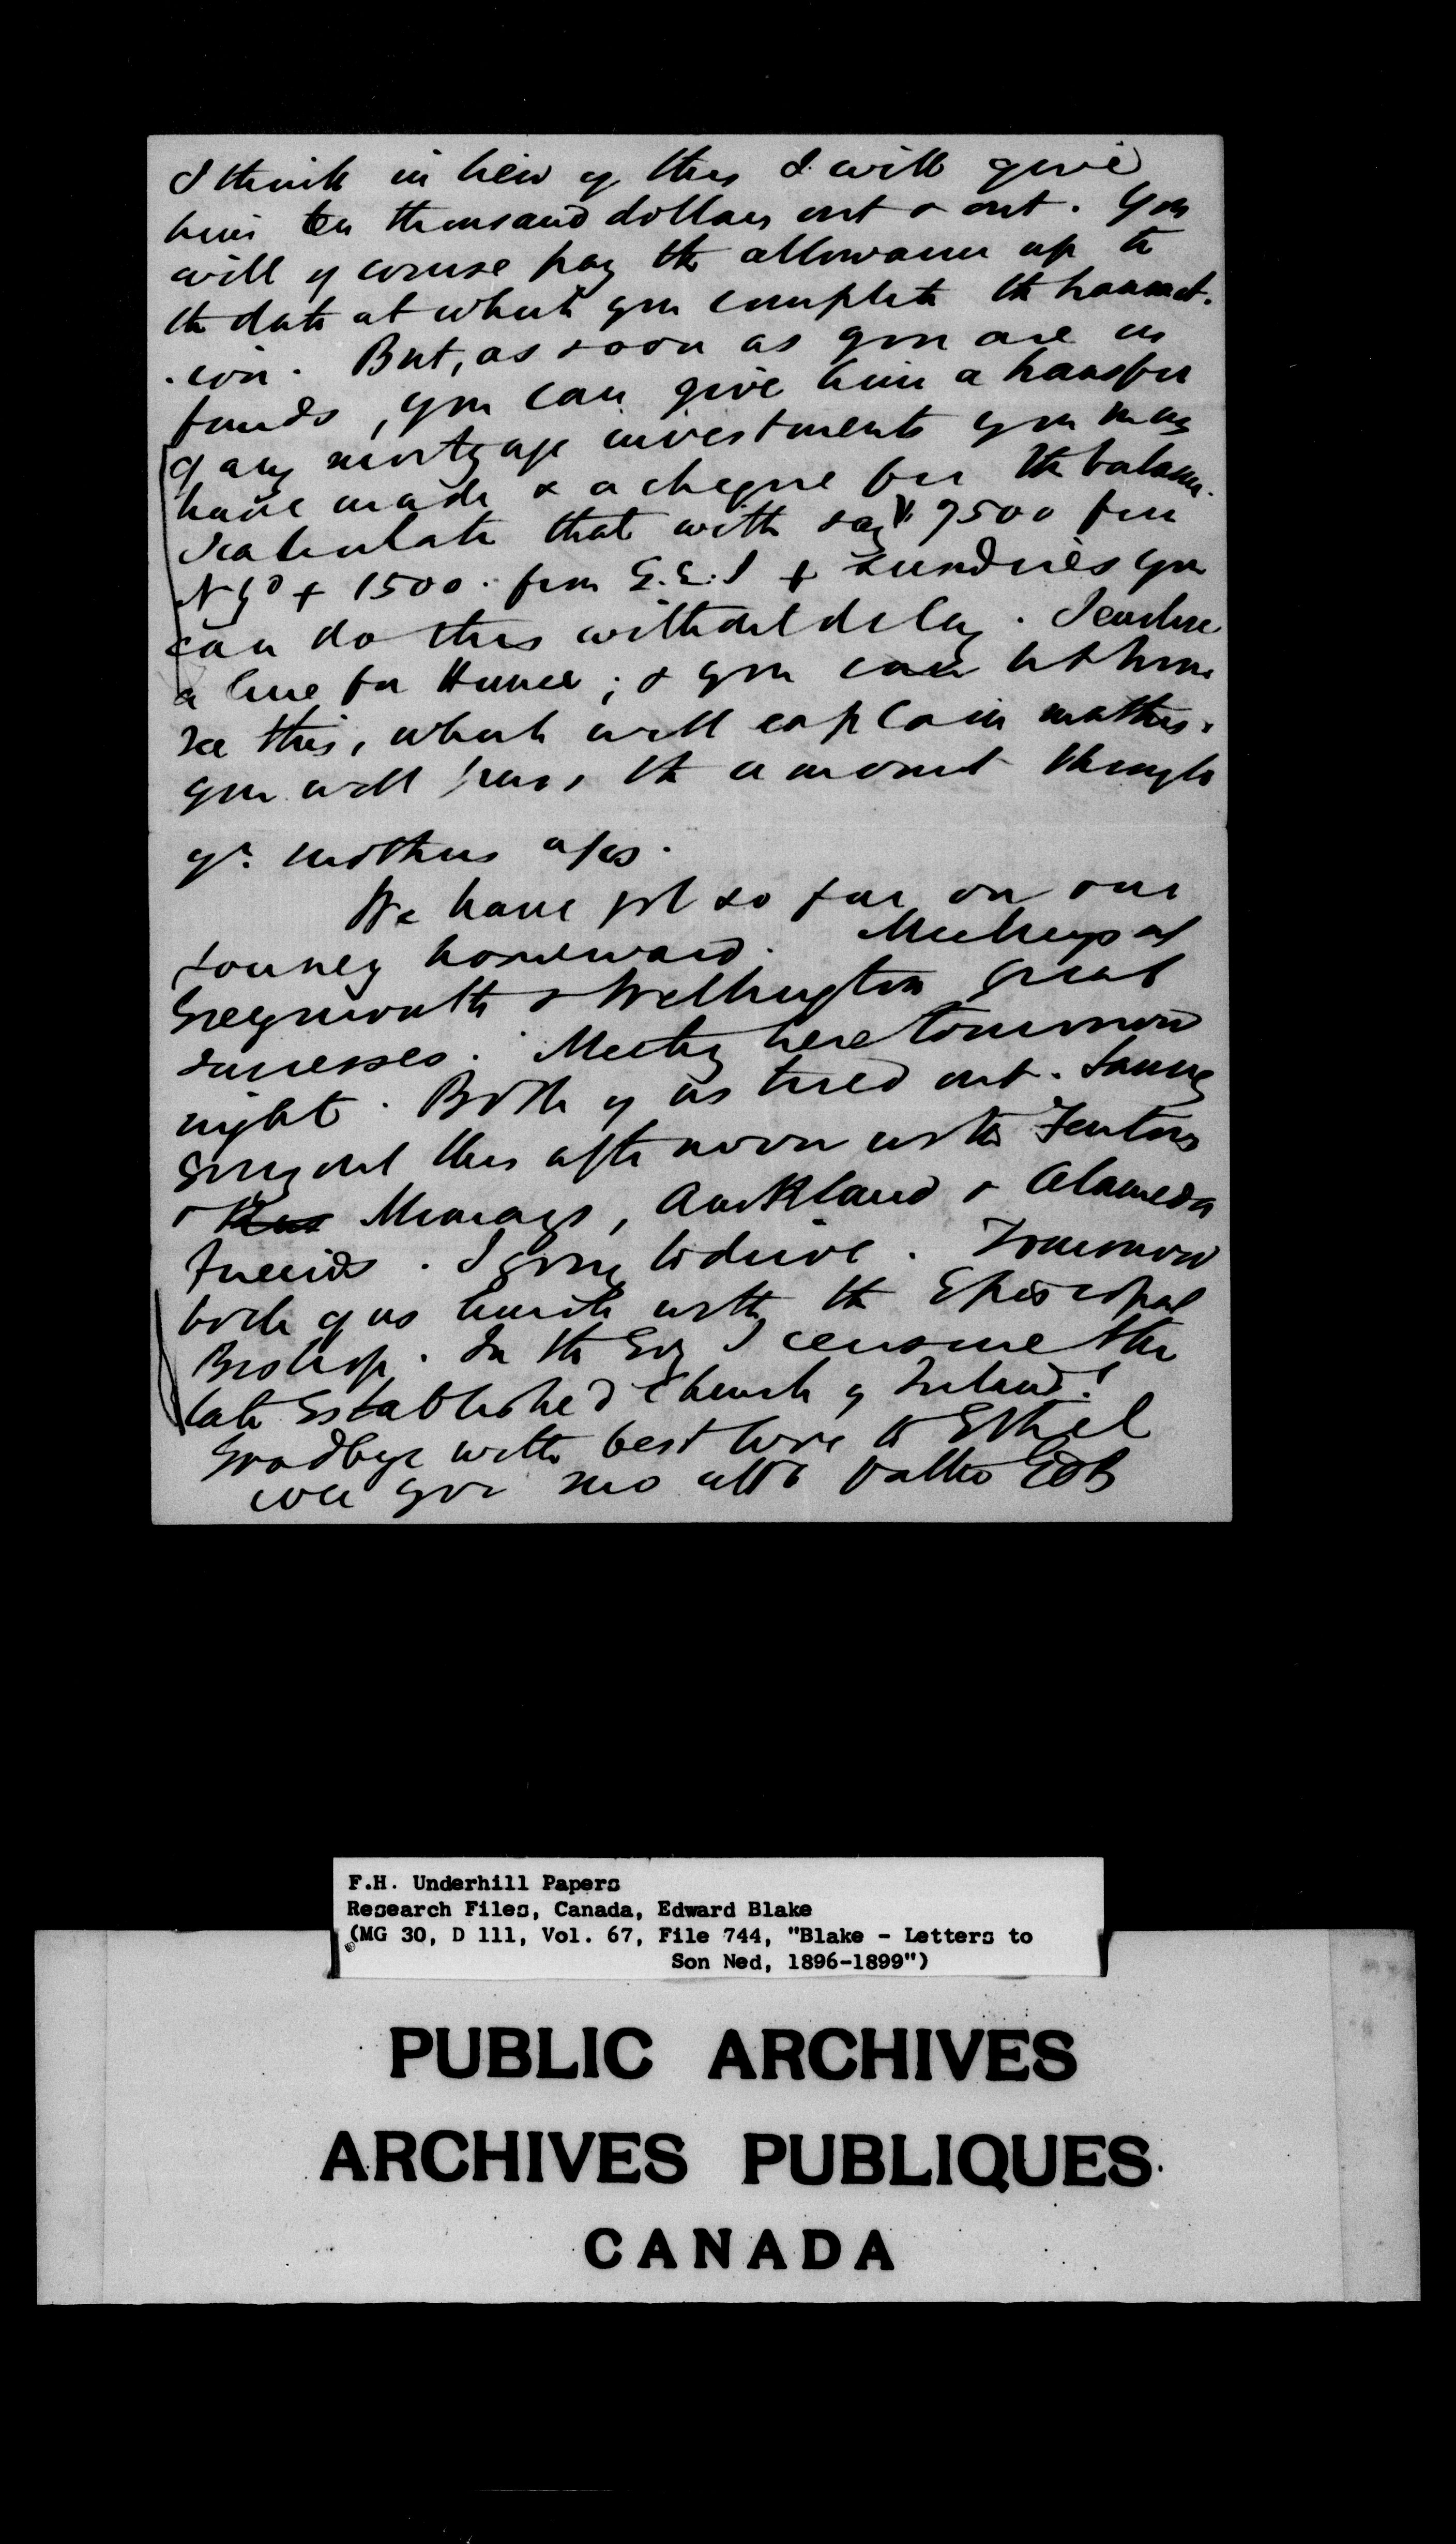 I think in lieu of this I will give
him ten thousand dollars out & out. You
will of course pay the allowance up to
the date at which you complete the transact-
-ion. But, as soon as you are in
funds, you can give him a transfer
of any mortgage investments you may
have made & a cheque for the balance.
I calculate that with say $ 7500 from
+ 1500. from G.E.I + sundries you
can do this without delay. I enclose
a line for Hume; & you can let him
see this, which will explain matters.
you will pass the amount through
yr. mothers a/cs.
We have got so far on our
Journey homeward. Meetings at
Greymouth & Wellington great
successes. Meeting here tomorrow
night. Both of us tired out.
going out this afternoon with
& , Auckland & Alameda
friends. I going to drive. Tomorrow
both of us lunch with the Episcopal
Bishop. In the Evg I censure the
late Established Church of Ireland!
Goodbye with best love to Ethel
ever your mo afft father EB
F.H. Underhill Papers
Research Files, Canada, Edward Blake
(MG 30, D 111, Vol. 67, File 744, "Blake - Letters to
Son Ned, 1896-1899")
PUBLIC ARCHIVES
ARCHIVES PUBLIQUES
CANADA